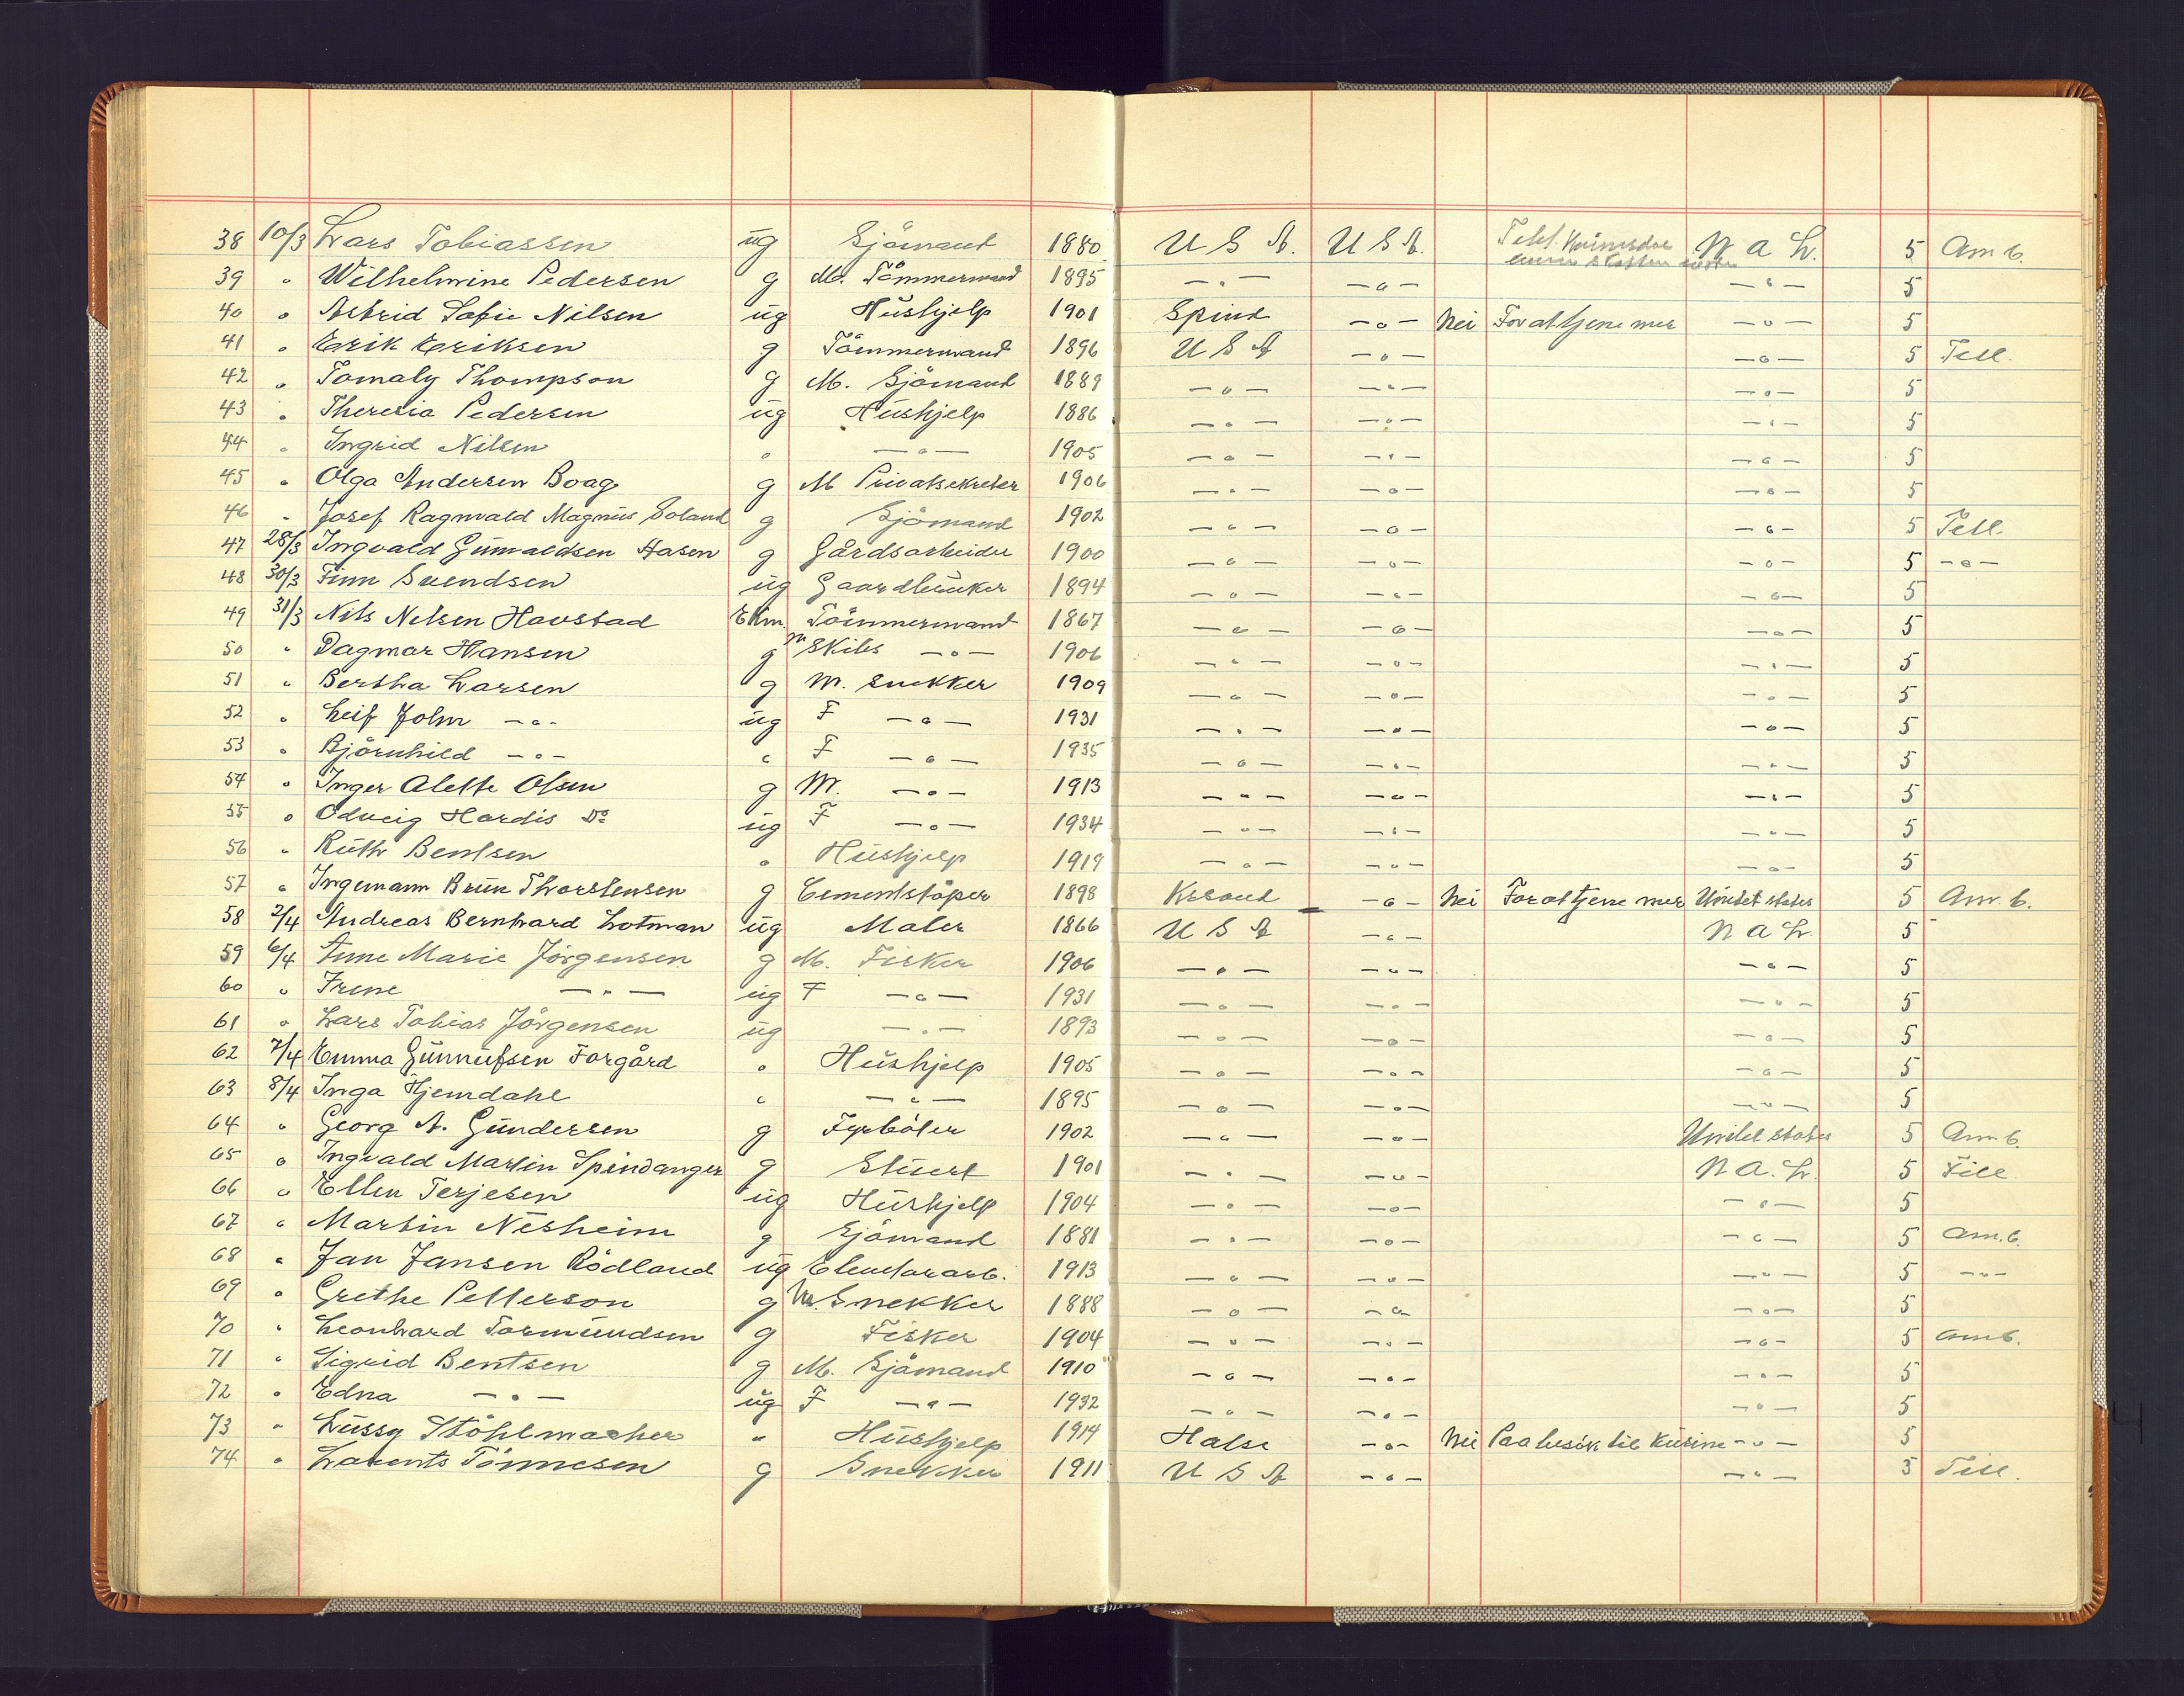 38 10/3 Lars Tobiassen ug Sjömand 1880 U S A. U S A. N A L. 5 Am b.
39 " Wilhelmine Pedersen g M. Tömmermand 1895 — " — — " — — " — 5
40 " Astrid Sofie Nilsen ug Hushjelp 1901 Spind — " — Nei For at tjene mer — " — 5
41 " Erik Eriksen g Tömmermand 1896 U S A — " — — " — 5 Tell.
42 " Tomaly Thompson g M. Sjömand 1889 — " — — " — — " — 5
43 " Theresia Pedersen ug Hushjelp 1886 — " — — " — — " — 5
44 " Ingrid Nilsen " — " — 1905 — " — — " — — " — 5
45 " Olga Andersen Boag g M Privatsekretær 1906 — " — — " — — " — 5
46 " Josef Ragnvald Magnus Soland g Sjömand 1902 — " — — " — — " — 5 Tell.
47 28/3 Ingvald Gunvaldsen Aasen g Gårdsarbeider 1900 — " — — " — — " — 5 — " —
48 30/3 Finn Svendsen ug Gaardbruker 1894 — " — — " — — " — 5
49 31/3 Nils Nelsen Havstad Ekm. Tömmermand 1867 — " — — " — — " — 5
50 " Dagmar Hansen g m Skibs — " — 1906 — " — — " — — " — 5
51 " Bertha Larsen g M. Snekker 1909 — " — — " — — " — 5
52 " Leif John — " — ug F — " — 1931 — " — — " — — " — 5
53 " Björnhild — " — " F — " — 1935 — " — — " — — " — 5
54 " Inger Alette Olsen g M. — " — 1913 — " — — " — — " — 5
55 " Odveig Hardis Do ug F — " — 1934 — " — — " — — " — 5
56 " Ruth Bentsen " Hushjelp 1919 — " — — " — — " — 5
57 " Ingemann Brun Thorstensen g Cementstöper 1898 Krsand — " — Nei For at tjene mer Unitet states 5 Am. b.
58 2/4 Andreas Bernhard Lotman ug Maler 1866 U S A — " — N A L. 5
59 6/4 Anne Marie Jörgensen g M. Fisker 1906 — " — — " — — " — 5
60 " Irene — " — ug F — " — 1931 — " — — " — — " — 5
61 " Lars Tobias Jörgensen ug — " — 1893 — " — — " — — " — 5
62 7/4 Emma Gunnufsen Forgård " Hushjelp 1905 — " — — " — — " — 5
63 8/4 Inga Hjemdahl " — " — 1895 — " — — " — — " — 5
64 " Georg A. Gundersen g Fyrböter 1902 — " — — " — Unitet states 5 Am b.
65 " Ingvald Martin Spindanger g Stuert 1901 — " — — " — N A. L. 5 Tell
66 " Ellen Terjesen ug Hushjelp 1904 — " — — " — — " — 5
67 " Martin Nesheim g Sjömand 1881 — " — — " — — " — 5 Am. b.
68 " Jan Jansen Rödland ug Elevatorarb. 1913 — " — — " — — " — 5 — " —
69 " Grethe Petterson g M. Snekker 1888 — " — — " — — " — 5
70 " Leonhard Tormundsen g Fisker 1904 — " — — " — — " — 5 Am b.
71 " Sigrid Bentsen g M. Sjömand 1910 — " — — " — — " — 5
72 " Edna — " — ug F — " — 1932 — " — — " — — " — 5
73 " Lussy Stöhlmacher " Hushjelp 1914 Halse — " — Nei Paa besök til Kusine — " — 5
74 " Larents Tönnesen g Snekker 1911 U S A — " — — " — 5 Tell.